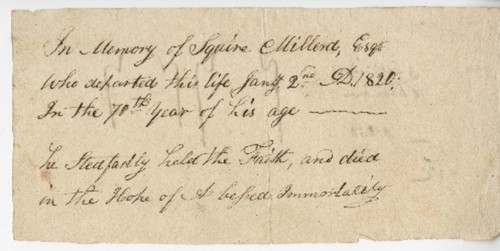 In Memory of Squire Millerd, Esqr
Who departed this life Jany 2nd AD. 1820;
In the 70th Year of his age ———
he Stedfastly held the Faith, and died
in the Hope of A blessed Immortality